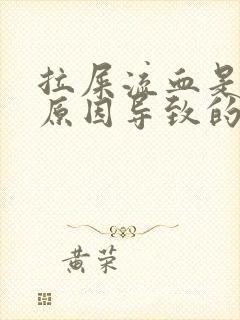 拉屎流血是
原因导致的
黄荣